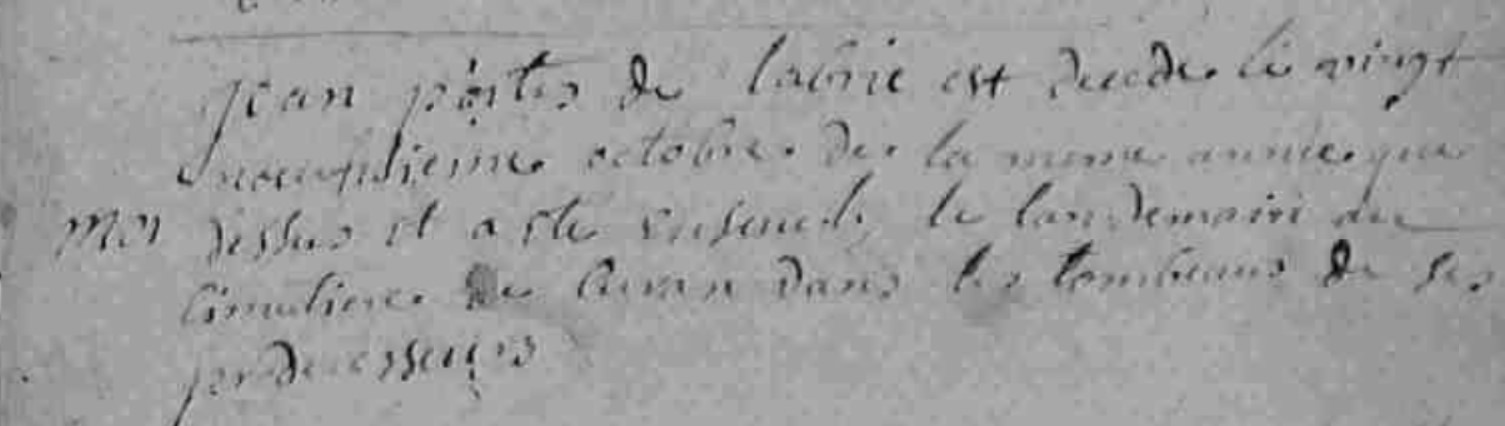 Jean portes de labrie est decede le vingt
neufvieme octobre de la mesme annee que
mor dessus et a este ensevely le landemain au
cimetiere de dans les tombeaus de ses
predecesseurs